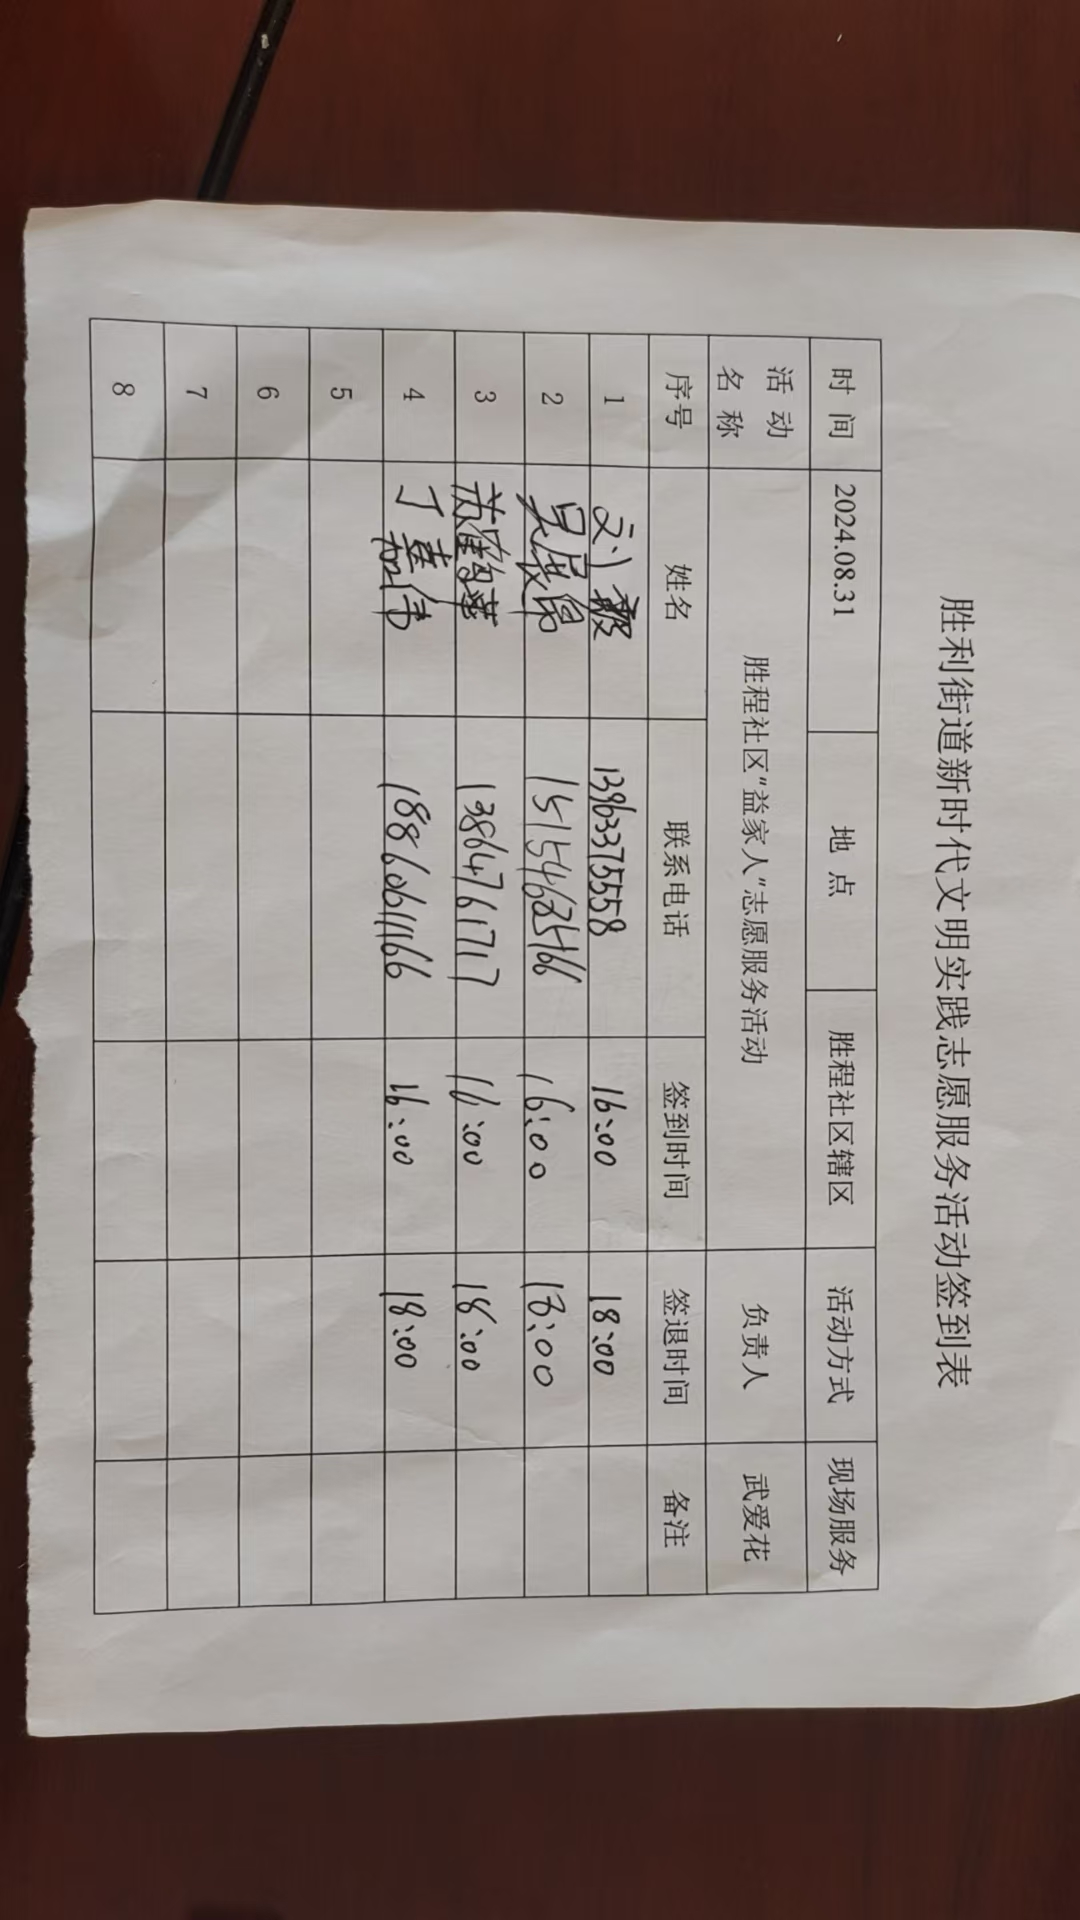 胜利街道新时代文明实践志愿服务活动签到表
时间 2024.08.31 地点 胜程社区辖区 活动方式 现场服务
活动名称 胜程社区“益家人”志愿服务活动 负责人 武爱花
序号 姓名 联系电话 签到时间 签退时间 备注
1 刘毅 13963375558 16:00 18:00
2 16:00 18:00
3 13864761717 16:00 18:00
4 丁嘉伟 18860611166 16:00 18:00
5
6
7
8